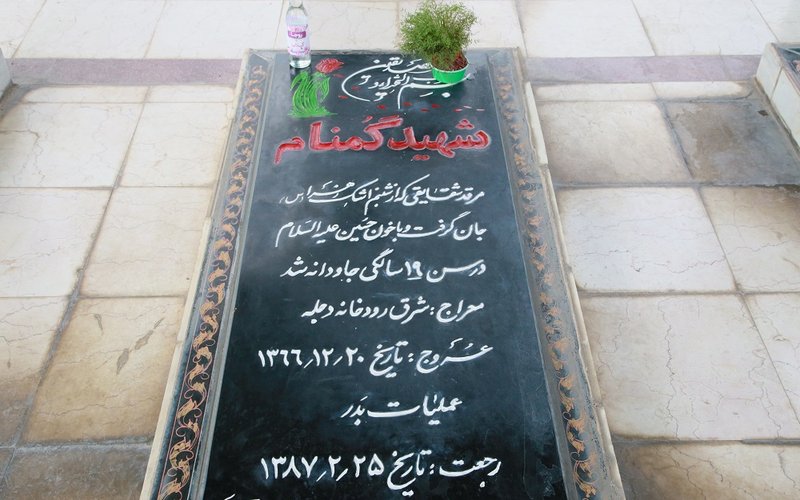 شهید گمنام
مرقد شقایقی که از شبنم اشک زهرا (س)
جان گرفت و با خون حسین علیه السلام
در سن ۱۹ سالگی جاودانه شد
معراج : شرق رودخانه دجله
عروج : تاریخ ۱۳۶۶٫۱۲٫۲۰
عملیات بدر
رجعت : تاریخ ۱۳۸۷٫۲٫۲۵